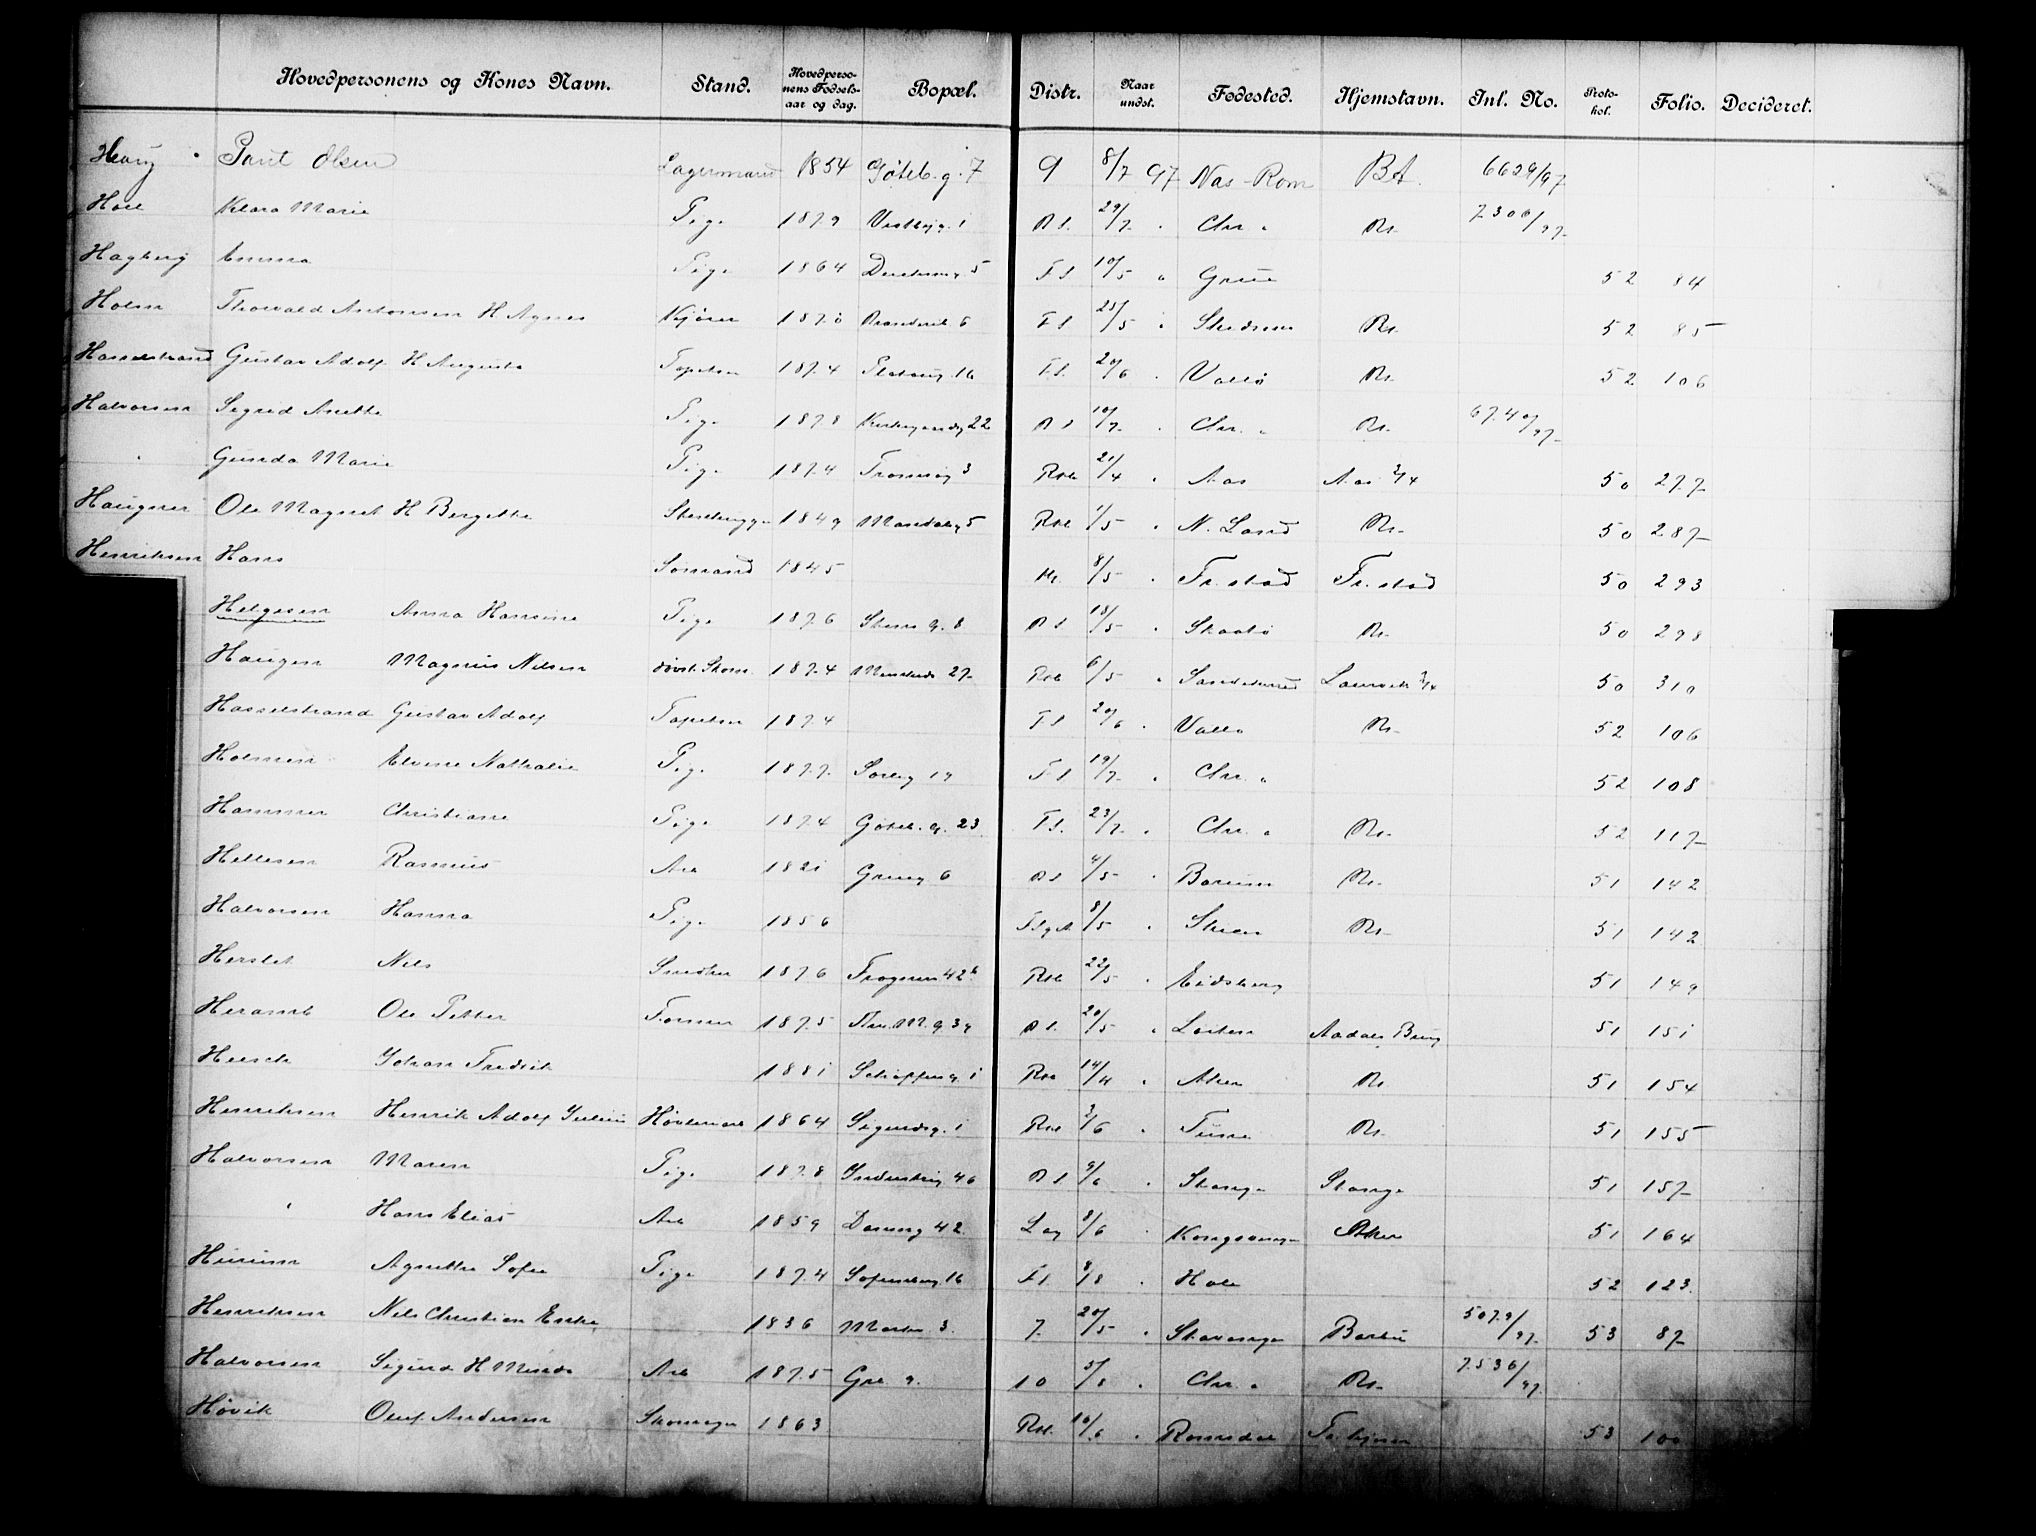 Hovedpersonens og Kones Navn. Stand. Hovedpersonens Fødselsaar og dag. Bopæl. Distr. Naar undst. Fødested. Hjemstavn. Inl. No. Protokol. Folio. Decideret.
Haug Paul Olsen Lagermand 1854 Göteb. g. 7 9 8/7 97 Nas-Rom BA. 6629/97
Hoel Klara Marie Pige 1879 Vestbyg. 1 Bl. 29/7 " Chr. " Br. 7306/97
Hagberg Emma Pige 1864 5 Fl 10/5 " Grue 52 84
Holm Thorvald Antonsen H Agnes Kjører 1870 6 Fl 25/5 " Br. 52 85
Hasselstrand Gustav Adolf H Augusta Tapetsr 1874 16 Fl. 20/6 " Vallø Br. 52 106
Halvorsen Sigrid Anette Pige 1878 Kirkegaardsg 22 Bl 10/7 " Chr. " Br. 6740/97
" Gunda Marie Pige 1874 Tromsøg 3 Rob 21/4 " Aas Aas 3/4 50 277
Haugner Ole Magnus H Bergitte Stenhugger 1849 Mandalsg 5 Rob 1/5 " N. Land Br. 50 287
Henriksen Hans Sømand 1845 8/5 " Fr.stad Fr.stad 50 293
Helgesen Anna Hansine Pige 1876 Stens g. 8 Bl 18/5 " Skaatø Br. 50 298
Haugen Magnus Nilsen døvst. Skom. 1874 27 Rob 6/5 " Sandeherred Laurvik 3/4 50 310
Hasselstrand Gustav Adolf Tapetsr 1874 Fl 20/6 " Vallø Br. 52 106
Holmen Elvine Nathalie Pige 1877 Sorlig 19 Fl 19/7 " Chr. " 52 108
Hammer Christiane Pige 1874 Göteb. g. 23 Fl. 23/7 " Chr. " Br. 52 117
Hellesen Rasmus Arb 1821 Grueg 6 Bl 4/5 " Bærum Br. 51 142
Halvorsen Hanna Pige 1856 8/5 " Skien Br. 51 142
Herslet Nils Snedker 1876 Frognerv 42b Rob 22/5 " Eidsberg 51 149
Heramb Ole Petter Former 1875 Thv. M. g. 39 Bl. 20/5 " Løiten Aadals Brug 51 151
Hersch Johan Fredrik 1881 Schøppeng 1 Rob 14/4 " Aker Br 51 154
Henriksen Henrik Adolf Julius Høvlearb 1864 Sigurdsg. 1 Rob 2/6 " Tune Br. 51 155
Halvorsen Maren Pige 1878 Industrig 46 Bl 9/6 " Stange Stange 51 157
" Hans Elias Arb 1859 Darreg 42 Lag 8/6 " Kongsvinger Aker 51 164
Husum Agnethe Sofie Pige 1874 Sofienberg 16 Fl. 8/8 " Hole 52 123
Henriksen Nils Christian Enke 1836 3. 7. 20/5 " Stavanger Barbu 5079/97 53 87
Halvorsen Sigurd H Minda Arb 1875 10 5/8 " Chr. " Br. 7536/97
Høvik Oluf Andersen Skomager 1863 Rob. 16/6 " Romsdal 53 100